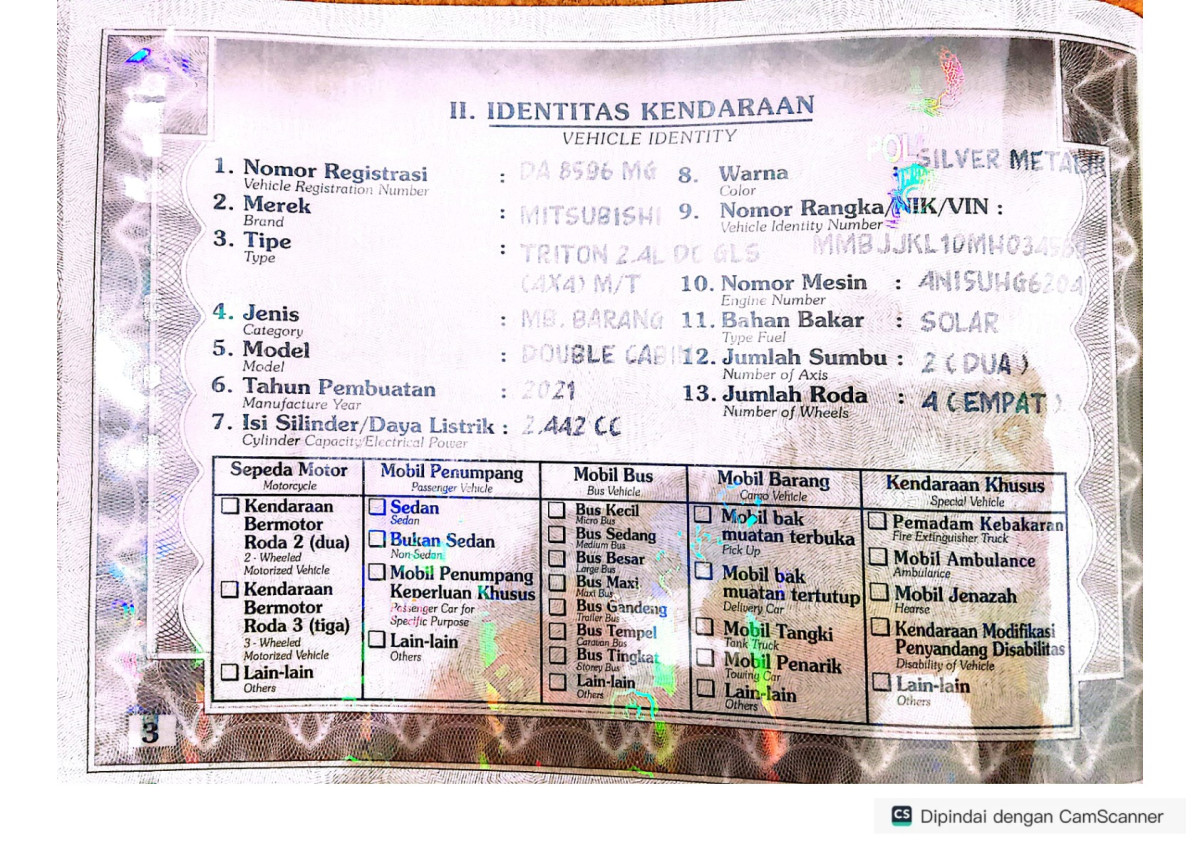 II. IDENTITAS KENDARAAN
VEHICLE IDENTITY
1. Nomor Registrasi : DA 8596 MG
Vehicle Registration Number
2. Merek : MITSUBISHI
Brand
3. Tipe : TRITON 2.4L DC GLS
Type
(4X4) M/T
4. Jenis : MB. BARANG
Category
5. Model : DOUBLE CABIN
Model
6. Tahun Pembuatan : 2021
Manufacture Year
7. Isi Silinder/Daya Listrik : 2.442 CC
Cylinder Capacity/Electrical Power
8. Warna : SILVER METALIK
Color
9. Nomor Rangka/NIK/VIN :
Vehicle Identity Number
10. Nomor Mesin :
Engine Number
11. Bahan Bakar : SOLAR
Type Fuel
12. Jumlah Sumbu : 2 ( DUA )
Number of Axis
13. Jumlah Roda : 4 ( EMPAT )
Number of Wheels
Sepeda Motor
Motorcycle
Kendaraan
Bermotor
Roda 2 (dua)
2 - Wheeled
Motorized Vehicle
Kendaraan
Bermotor
Roda 3 (tiga)
3 - Wheeled
Motorized Vehicle
Lain-lain
Others
Mobil Penumpang
Passenger Vehicle
Sedan
Sedan
Bukan Sedan
Non Sedan
Mobil Penumpang
Keperluan Khusus
Passenger Car for
Specific Purpose
Lain-lain
Others
Mobil Bus
Bus Vehicle
Bus Kecil
Micro Bus
Bus Sedang
Medium Bus
Bus Besar
Large Bus
Bus Maxi
Maxi Bus
Bus Gandeng
Trailer Bus
Bus Tempel
Caravan Bus
Bus Tingkat
Storey Bus
Lain-lain
Others
Mobil Barang
Cargo Vehicle
Mobil bak
muatan terbuka
Pick Up
Mobil bak
muatan tertutup
Delivery Car
Mobil Tangki
Tank Truck
Mobil Penarik
Towing Car
Lain-lain
Others
Kendaraan Khusus
Special Vehicle
Pemadam Kebakaran
Fire Extinguisher Truck
Mobil Ambulance
Ambulance
Mobil Jenazah
Hearse
Kendaraan Modifikasi
Penyandang Disabilitas
Disability of Vehicle
Lain-lain
Others
3
CS Dipindai dengan CamScanner